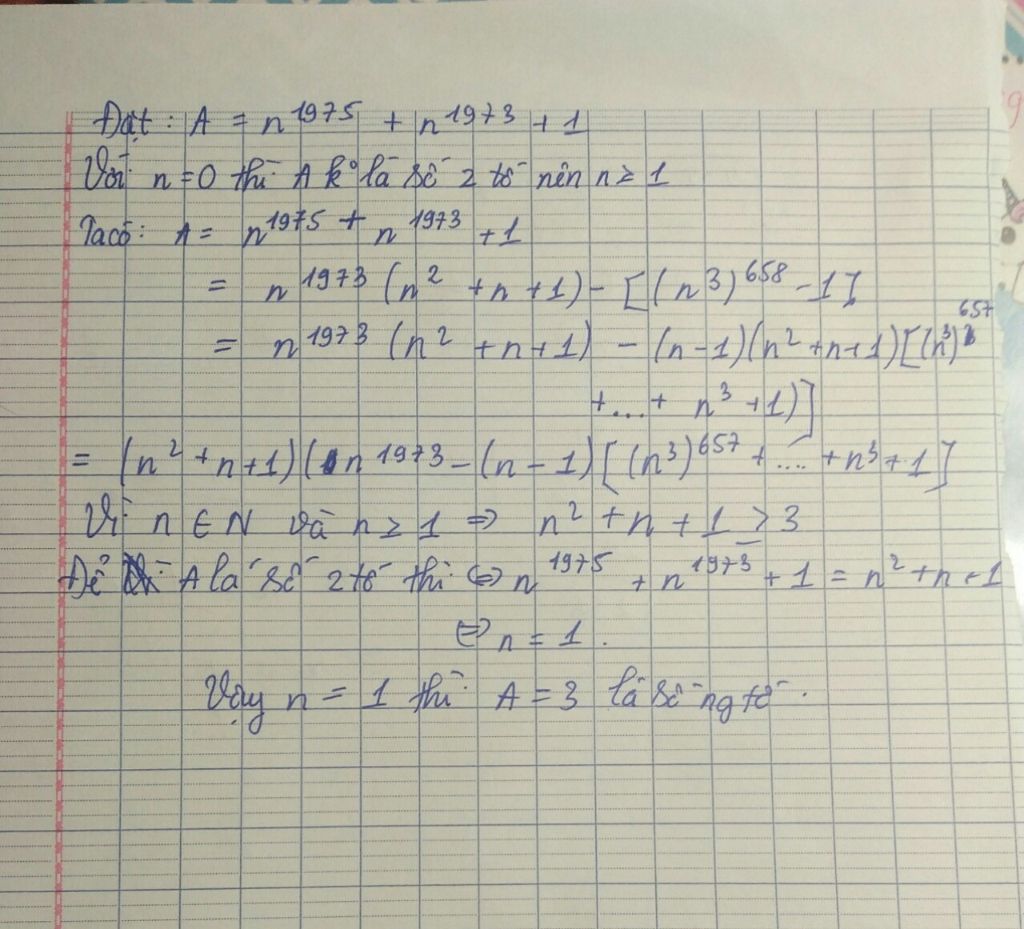 Đặt: A = n^1975 + n^1973 + 1
Với n = 0 thì A k° là số z tố nên n ≥ 1
Ta có: A = n^1975 + n^1973 + 1
= n^1973 (n^2 + n + 1) - [(n^3)^658 - 1]
= n^1973 (n^2 + n + 1) - (n - 1)(n^2 + n + 1)[(n^3)^657
+ ... + n^3 + 1)]
= (n^2 + n + 1)(n^1973 - (n - 1)[(n^3)^657 + ... + n^3 + 1]
Vì n ∈ N và n ≥ 1 ⇒ n^2 + n + 1 ≥ 3
Để A là số z tố thì ⇔ n^1975 + n^1973 + 1 = n^2 + n + 1
⇔ n = 1.
Vậy n = 1 thì A = 3 là số ng tố.